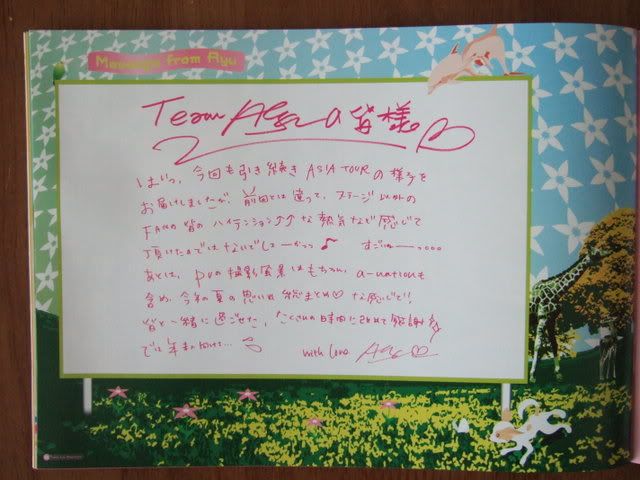 Message from Ayu
Team Ayu の皆様
はいっ、今回も引き続き ASIA TOUR の様子を
お届けしましたが、前回とは違って、ステージ以外の
FANの皆のハイテンション↑↑な熱気など感じて
頂けたのではないでしょーかっっ♪ すごいねーっ。。。
あとは、PVの撮影風景はもちろん、a-nationも
含め、今年の夏の思い出総まとめ♡な感じで!
皆と一緒に過ごせた、たくさんの時間にさらめて感謝
では年末に向けて...
with love Ayu♡